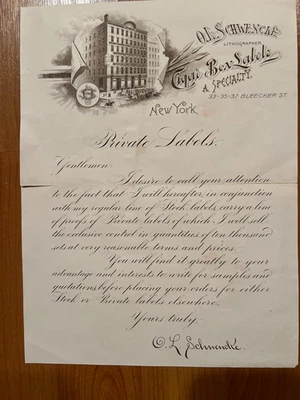 O.L. Schwencke
Lithographer
Cigar Box Labels
A Specialty.
33-35-37 Bleecker St.
New York
Private Labels.
Gentlemen:
I desire to call your attention
to the fact that I will hereafter, in conjunction
with my regular line of Stock labels, carry a line
of proofs of Private labels of which I will sell
the exclusive control in quantities of ten thousand
sets at very reasonable terms and prices.
You will find it greatly to your
advantage and interests to write for samples and
quotations before placing your orders for either
Stock or Private labels elsewhere.
Yours truly,
O. L. Schwencke